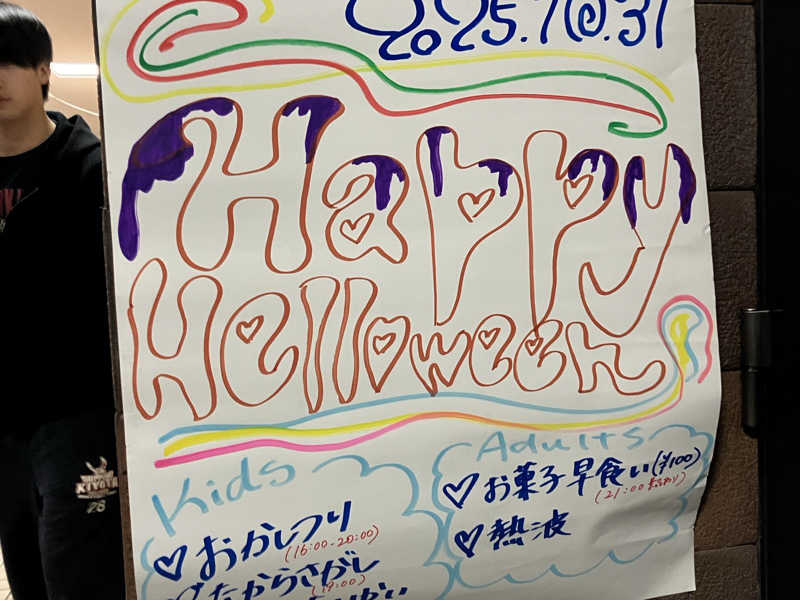 2025.10.31
Happy
Helloween
Kids
♡おかしつり
(16:00-20:00)
たからさがし
(19:00)
Adults
♡お菓子早食い(¥100)
♡熱波
KIYOTA
28